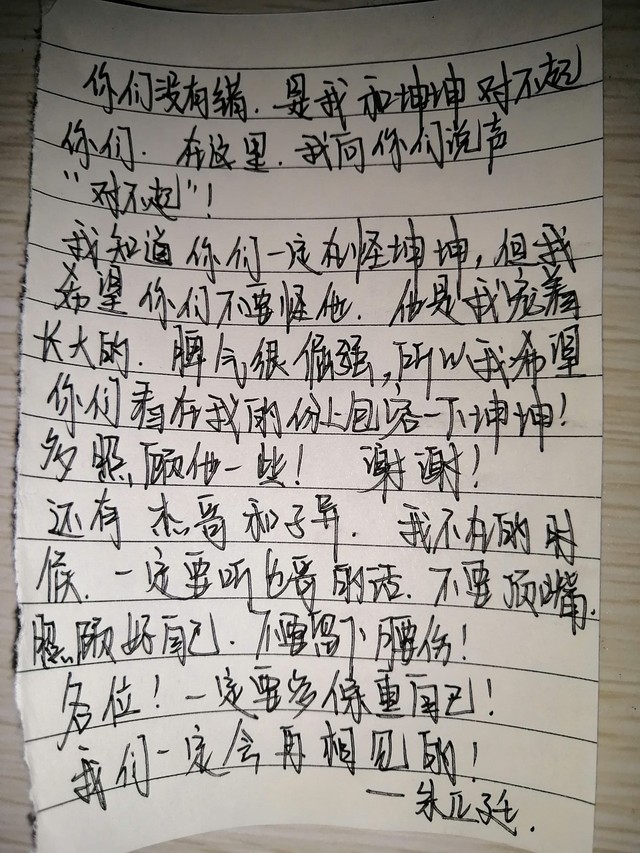 你们没有错.是我和坤坤对不起
你们.在这里.我向你们说声
“对不起”!
我知道你们一定在怪坤坤,但我
希望你们不要怪他.他是我宠着
长大的.脾气很倔强,所以我希望
你们看在我的份上包容一下坤坤!
多照顾他一些!谢谢!
还有杰哥和子异.我不在的时
候.一定要听七哥的话.不要顶嘴.
照顾好自己.不要留下腰伤!
各位!一定要多保重自己!
我们一定会再相见的!
—朱正廷.